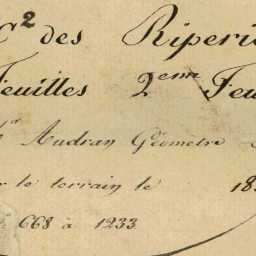 C² des Riperie
Feuilles 2eme Feu
Audran Géomètre
le terrain le 18
668 à 1233